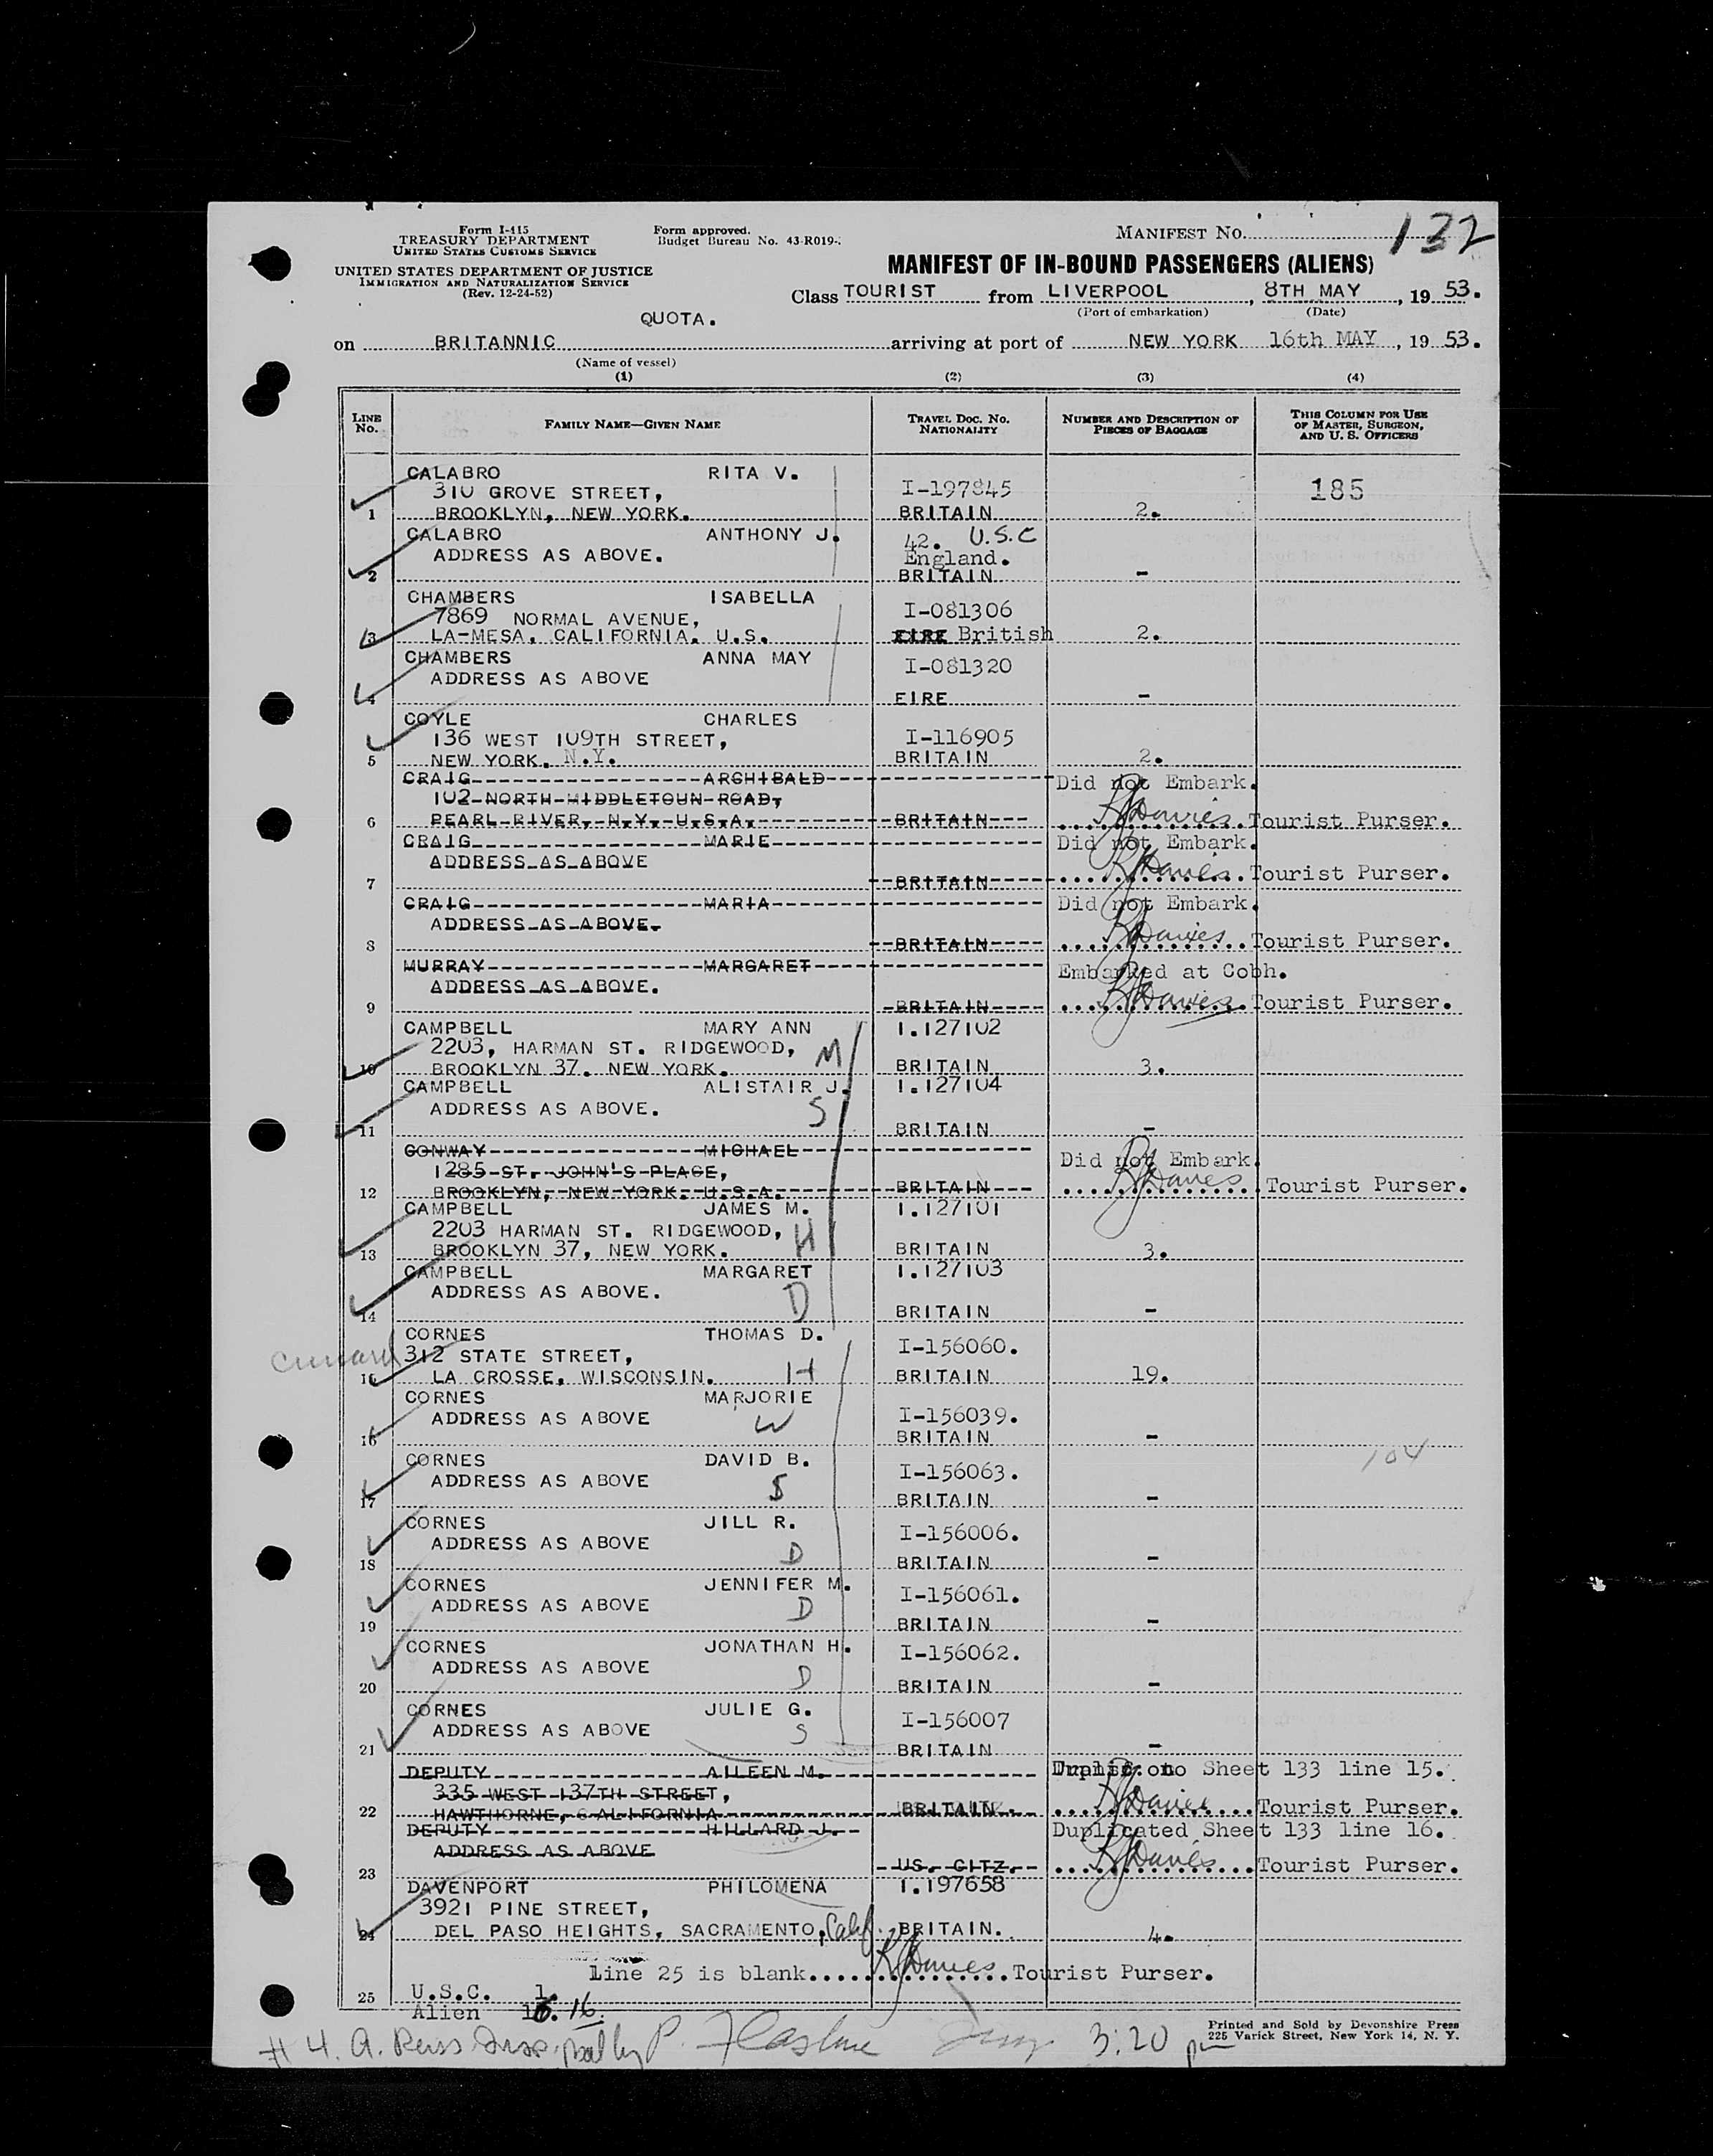 Form I-415
TREASURY DEPARTMENT
UNITED STATES CUSTOMS SERVICE
UNITED STATES DEPARTMENT OF JUSTICE
IMMIGRATION AND NATURALIZATION SERVICE
(Rev. 12-24-52)
Form approved.
Budget Bureau No. 43-R019-
MANIFEST NO. 132
MANIFEST OF IN-BOUND PASSENGERS (ALIENS)
Class TOURIST from LIVERPOOL, 8TH MAY, 19 53.
(Port of embarkation) (Date)
QUOTA.
on BRITANNIC arriving at port of NEW YORK 16th MAY, 19 53.
(Name of vessel)
(1) (2) (3) (4)
LINE NO. FAMILY NAME—GIVEN NAME TRAVEL DOC. NO. NATIONALITY NUMBER AND DESCRIPTION OF PIECES OF BAGGAGE THIS COLUMN FOR USE OF MASTER, SURGEON, AND U. S. OFFICERS
CALABRO RITA V.
310 GROVE STREET, I-197845 185
1 BROOKLYN, NEW YORK. BRITAIN 2.
CALABRO ANTHONY J. 42. U.S.C
ADDRESS AS ABOVE. England.
2 BRITAIN -
CHAMBERS ISABELLA I-081306
7869 NORMAL AVENUE,
3 LA-MESA, CALIFORNIA, U.S. EIRE British 2.
CHAMBERS ANNA MAY I-081320
ADDRESS AS ABOVE
4 EIRE -
COYLE CHARLES
136 WEST 109TH STREET, I-116905
5 NEW YORK. N.Y. BRITAIN 2.
CRAIG ARCHIBALD Did not Embark.
102 NORTH MIDDLETOUN ROAD,
6 PEARL RIVER, N.Y. U.S.A. BRITAIN Davies Tourist Purser.
CRAIG MARIE Did not Embark.
ADDRESS AS ABOVE
7 BRITAIN Davies Tourist Purser.
CRAIG MARIA Did not Embark.
ADDRESS AS ABOVE.
8 BRITAIN Davies Tourist Purser.
MURRAY MARGARET Embarked at Cobh.
ADDRESS AS ABOVE.
9 BRITAIN Davies Tourist Purser.
CAMPBELL MARY ANN I.127102
2203, HARMAN ST. RIDGEWOOD, M
10 BROOKLYN 37. NEW YORK. BRITAIN 3.
CAMPBELL ALISTAIR J. I.127104
ADDRESS AS ABOVE. S
11 BRITAIN -
CONWAY MICHAEL Did not Embark.
1285 ST. JOHN'S PLACE,
12 BROOKLYN, NEW YORK. U.S.A. BRITAIN Davies Tourist Purser.
CAMPBELL JAMES M. I.127101
2203 HARMAN ST. RIDGEWOOD, H
13 BROOKLYN 37, NEW YORK. BRITAIN 3.
CAMPBELL MARGARET I.127103
ADDRESS AS ABOVE. D
14 BRITAIN -
CORNES THOMAS D. I-156060.
Cunard 312 STATE STREET,
15 LA CROSSE, WISCONSIN. H BRITAIN 19.
CORNES MARJORIE
ADDRESS AS ABOVE W I-156039.
16 BRITAIN -
CORNES DAVID B. 104
ADDRESS AS ABOVE S I-156063.
17 BRITAIN -
CORNES JILL R. I-156006.
ADDRESS AS ABOVE D
18 BRITAIN -
CORNES JENNIFER M. I-156061.
ADDRESS AS ABOVE D
19 BRITAIN -
CORNES JONATHAN H. I-156062.
ADDRESS AS ABOVE D
20 BRITAIN -
CORNES JULIE G. I-156007
ADDRESS AS ABOVE S
21 BRITAIN -
DEPUTY AILEEN M. Sheet 133 line 15.
335 WEST 137TH STREET,
22 HAWTHORNE, CALIFORNIA BRITAIN. Davies Tourist Purser.
DEPUTY HILLARD J. Duplicated Sheet 133 line 16.
ADDRESS AS ABOVE
23 US. CITZ. Davies Tourist Purser.
DAVENPORT PHILOMENA I.197658
3921 PINE STREET,
24 DEL PASO HEIGHTS, SACRAMENTO, Calif. BRITAIN. 4.
Line 25 is blank. Davies Tourist Purser.
25 U.S.C. 1.
Alien 16.
# 4. A. 3:20 pm
Printed and Sold by Devonshire Press
225 Varick Street, New York 14, N. Y.